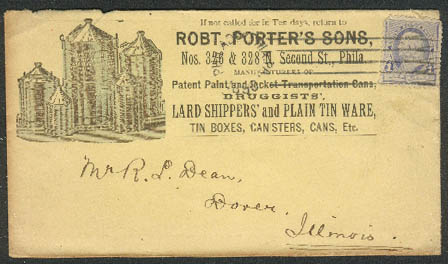 If not called for in Ten days, return to
ROBT. PORTER'S SONS,
Nos. 326 & 328 N. Second St., Phila
MANUFACTURERS OF
Patent Paint and Jacket Transportation Cans,
DRUGGISTS',
LARD SHIPPERS' and PLAIN TIN WARE,
TIN BOXES, CANISTERS, CANS, Etc.
Mr R. L. Dean,
Dover,
Illinois.